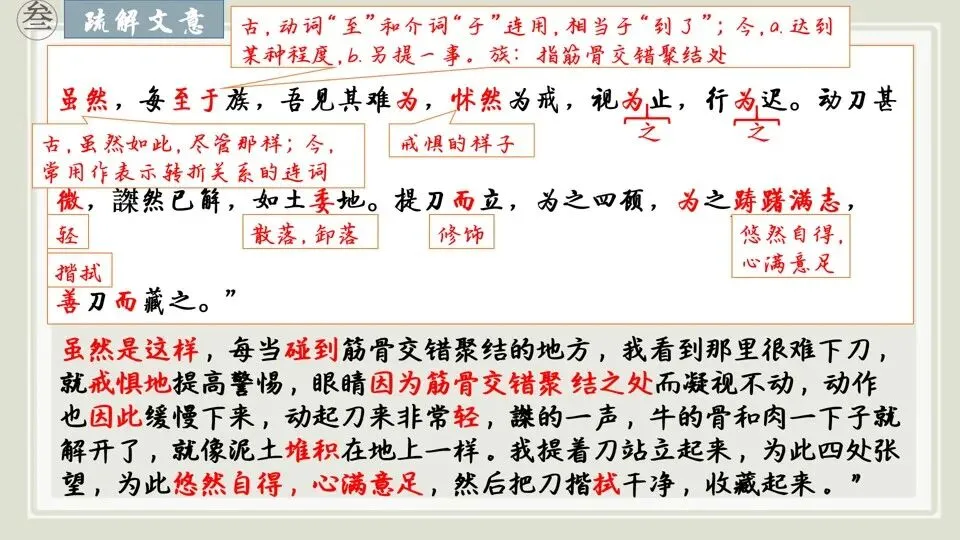 叁 疏解文意
古,动词“至”和介词“于”连用,相当于“到了”;今,a.达到
某种程度,b.另提一事。族:指筋骨交错聚结处
虽然,每至于族,吾见其难为,怵然为戒,视为止,行为迟。动刀甚
之 之
古,虽然如此,尽管那样;今,
常用作表示转折关系的连词
戒惧的样子
微,謋然已解,如土委地。提刀而立,为之四顾,为之踌躇满志,
轻
散落,卸落
修饰
悠然自得,
心满意足
揩拭
善刀而藏之。”
虽然是这样,每当碰到筋骨交错聚结的地方,我看到那里很难下刀,
就戒惧地提高警惕,眼睛因为筋骨交错聚 结之处而凝视不动,动作
也因此缓慢下来,动起刀来非常轻,謋的一声,牛的骨和肉一下子就
解开了,就像泥土堆积在地上一样。我提着刀站立起来,为此四处张
望,为此悠然自得,心满意足,然后把刀揩拭干净,收藏起来。”